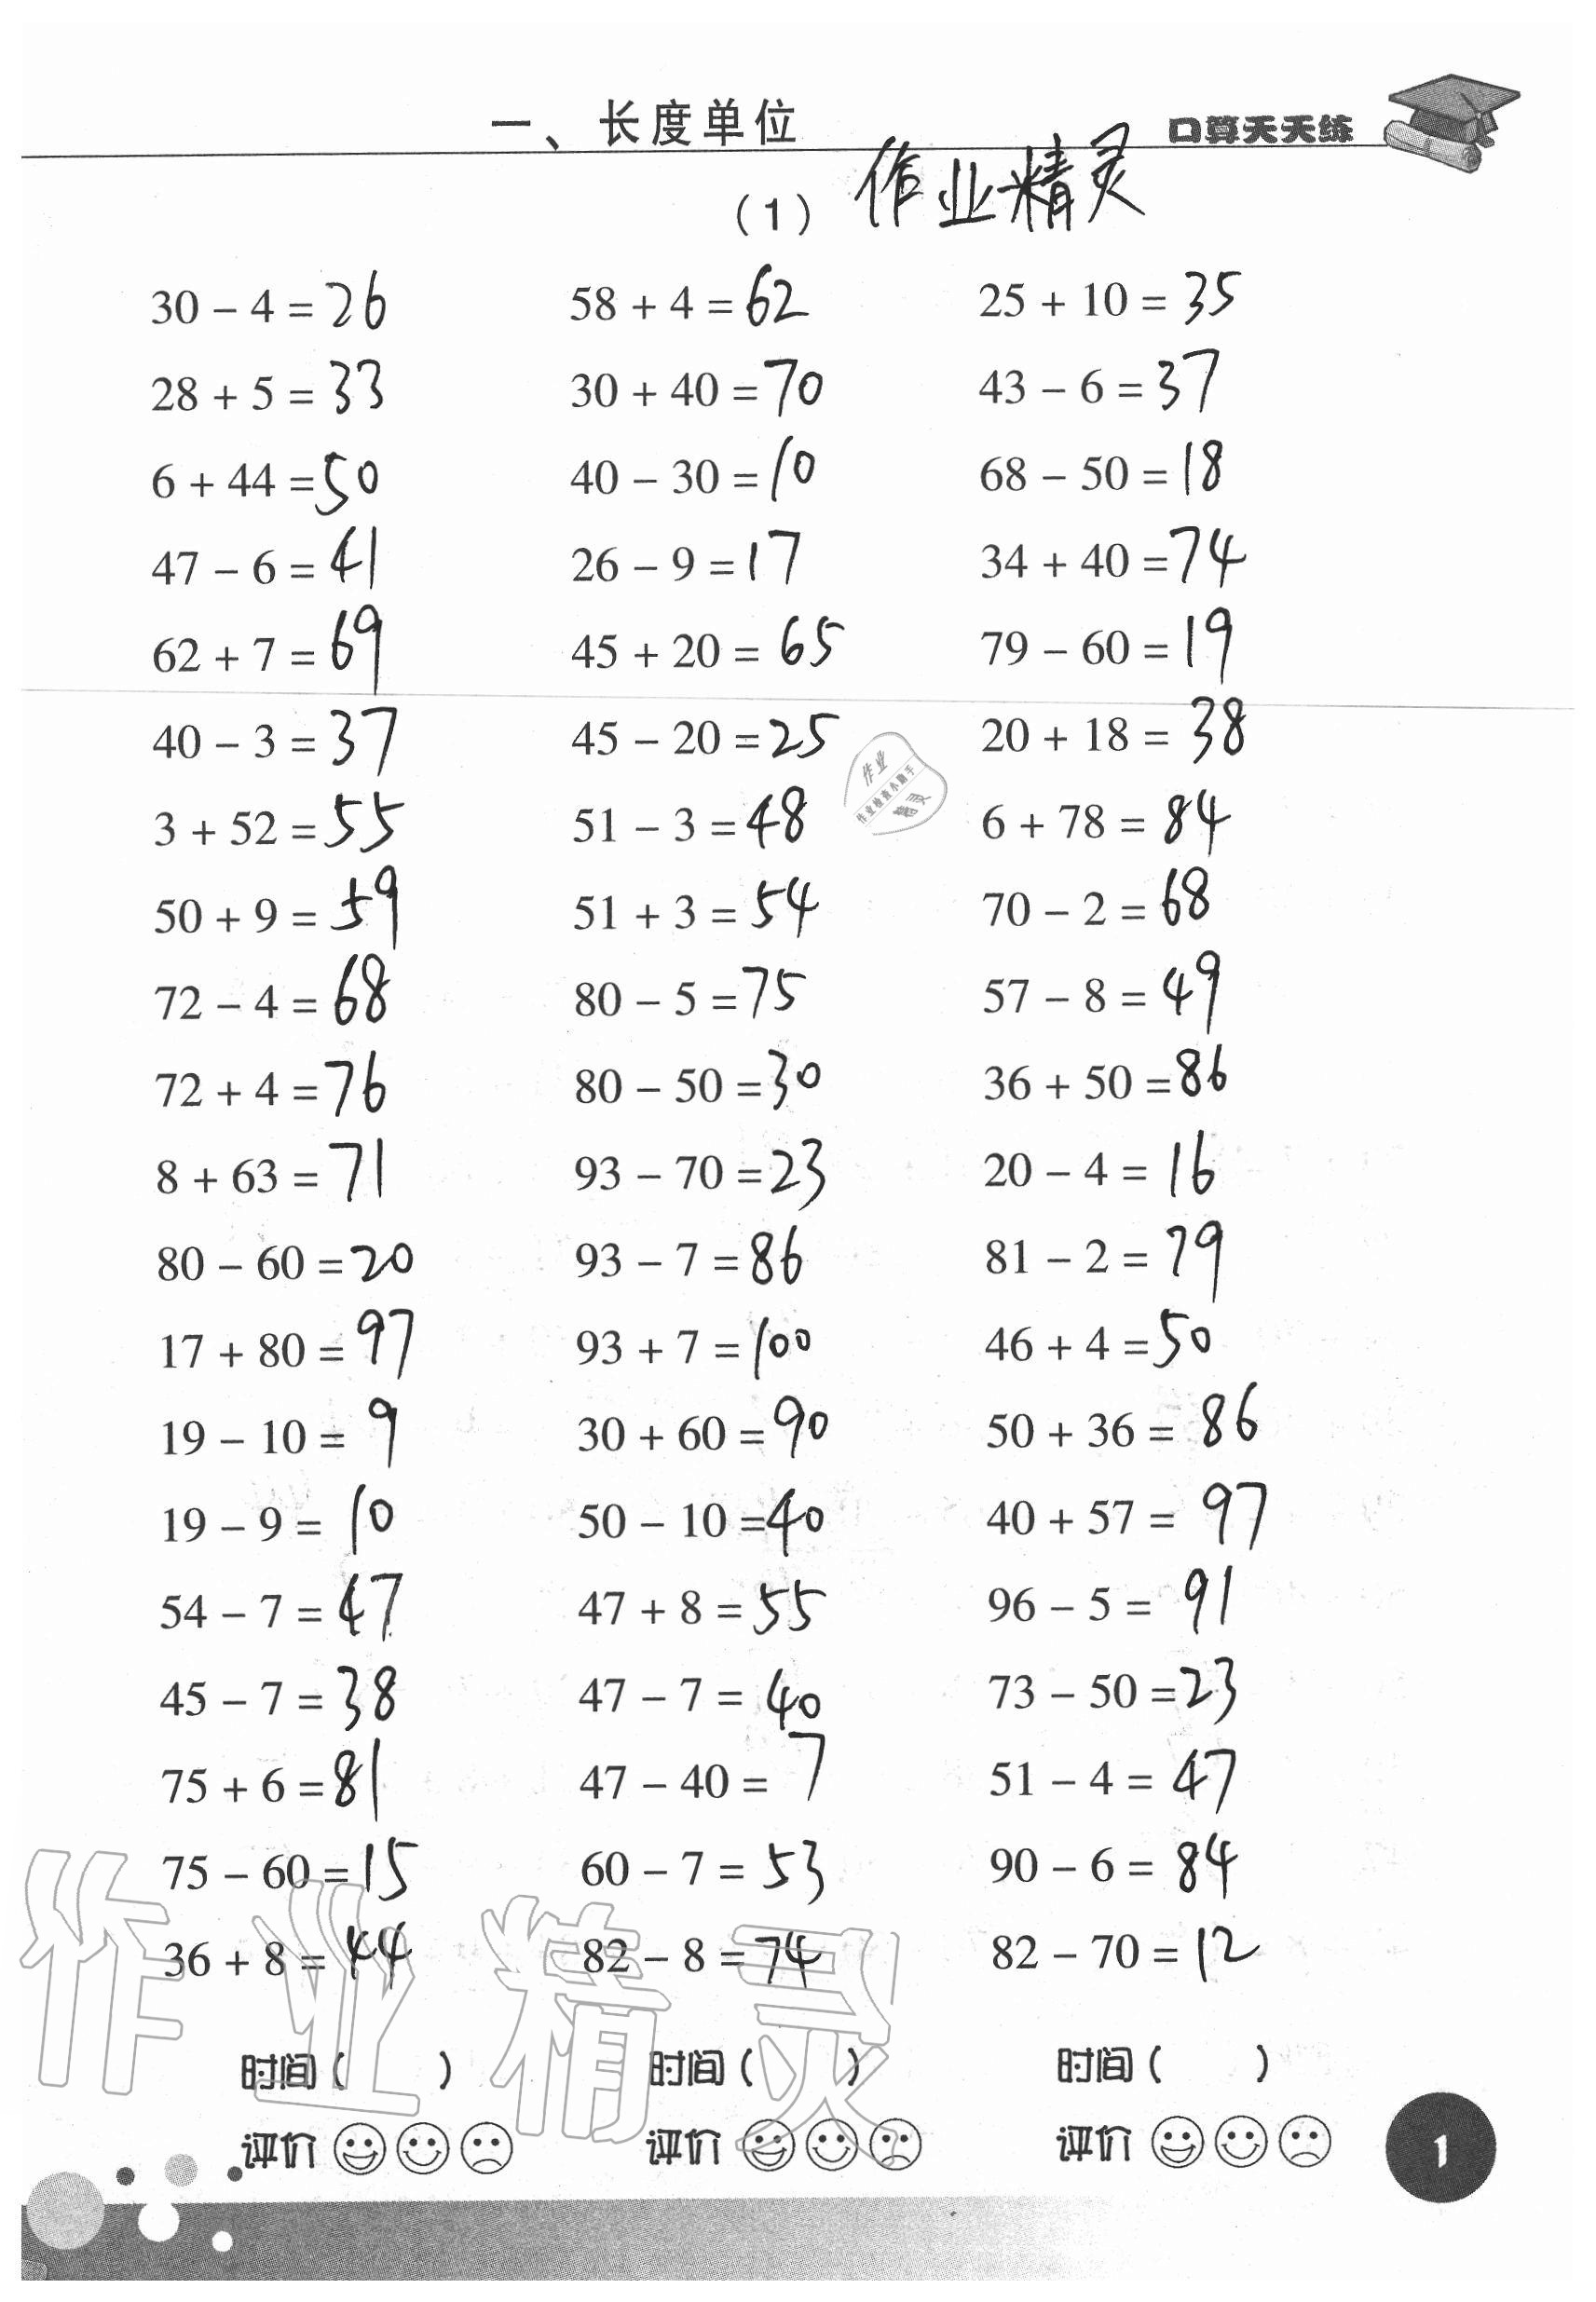 一、长度单位
口算天天练
作业精灵
(1)
30 − 4 = 26 58 + 4 = 62 25 + 10 = 35
28 + 5 = 33 30 + 40 = 70 43 − 6 = 37
6 + 44 = 50 40 − 30 = 10 68 − 50 = 18
47 − 6 = 41 26 − 9 = 17 34 + 40 = 74
62 + 7 = 69 45 + 20 = 65 79 − 60 = 19
40 − 3 = 37 45 − 20 = 25 20 + 18 = 38
作业
作业检查小助手
精灵
3 + 52 = 55 51 − 3 = 48 6 + 78 = 84
50 + 9 = 59 51 + 3 = 54 70 − 2 = 68
72 − 4 = 68 80 − 5 = 75 57 − 8 = 49
72 + 4 = 76 80 − 50 = 30 36 + 50 = 86
8 + 63 = 71 93 − 70 = 23 20 − 4 = 16
80 − 60 = 20 93 − 7 = 86 81 − 2 = 79
17 + 80 = 97 93 + 7 = 100 46 + 4 = 50
19 − 10 = 9 30 + 60 = 90 50 + 36 = 86
19 − 9 = 10 50 − 10 = 40 40 + 57 = 97
54 − 7 = 47 47 + 8 = 55 96 − 5 = 91
45 − 7 = 38 47 − 7 = 40 73 − 50 = 23
75 + 6 = 81 47 − 40 = 7 51 − 4 = 47
75 − 60 = 15 60 − 7 = 53 90 − 6 = 84
36 + 8 = 44 82 − 8 = 74 82 − 70 = 12
作业精灵
时间 ( ) 时间 ( ) 时间 ( )
评价 评价 评价
1